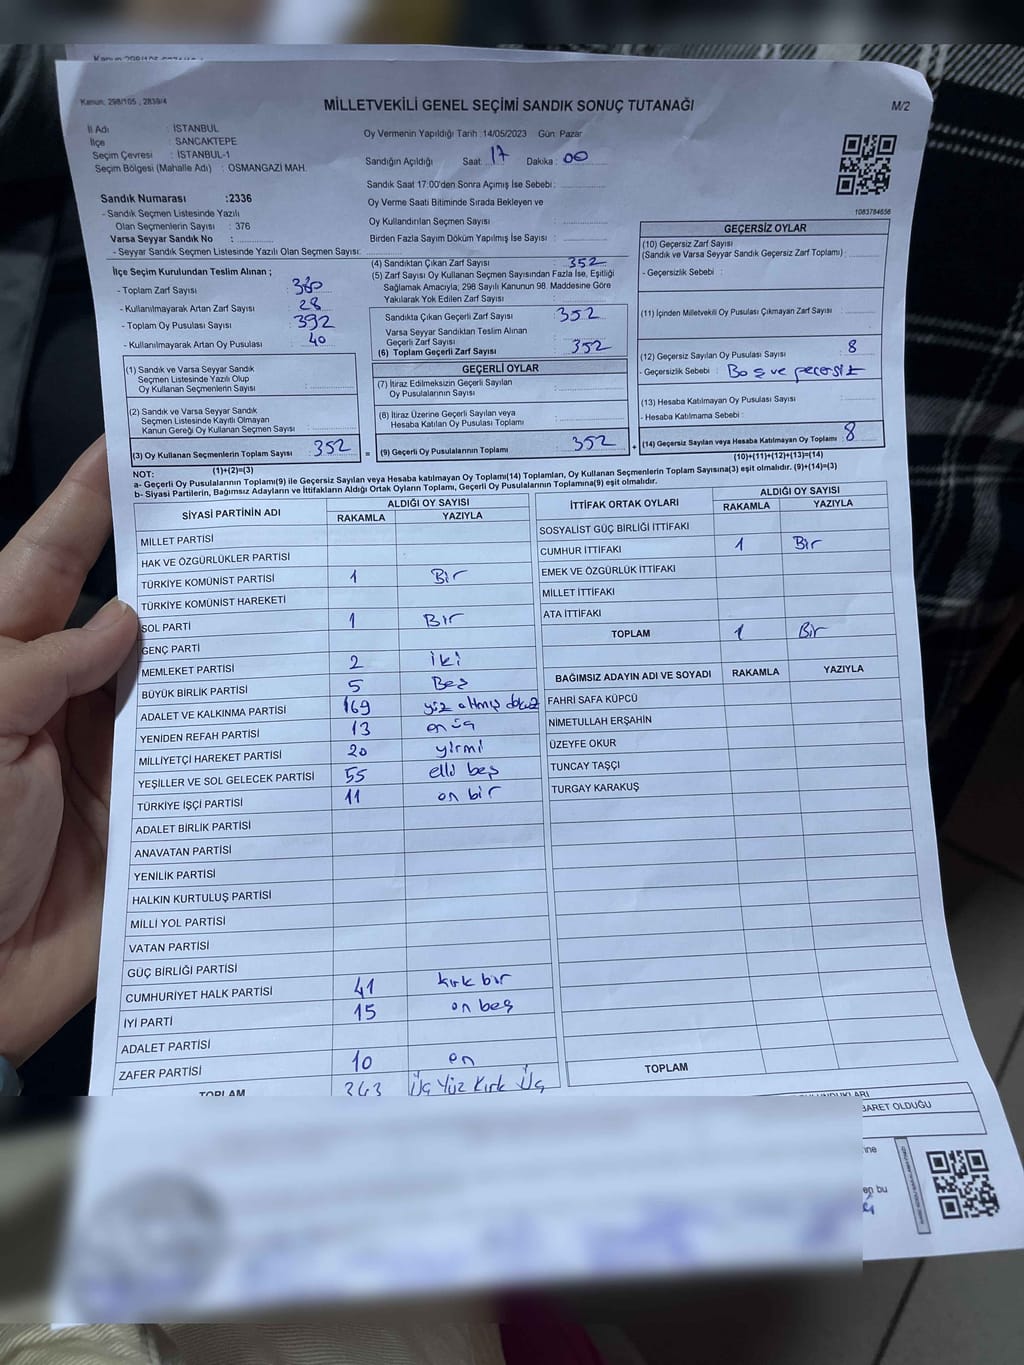 Kanun: 298/105 , 2839/4
MİLLETVEKİLİ GENEL SEÇİMİ SANDIK SONUÇ TUTANAĞI
M/2
İl Adı : İSTANBUL
İlçe : SANCAKTEPE
Seçim Çevresi : İSTANBUL-1
Seçim Bölgesi (Mahalle Adı) : OSMANGAZİ MAH.
Oy Vermenin Yapıldığı Tarih :14/05/2023 Gün: Pazar
Sandığın Açıldığı Saat 17 Dakika : 00
Sandık Saat 17:00'den Sonra Açımış İse Sebebi :
Oy Verme Saati Bitiminde Sırada Bekleyen ve
Oy Kullandırılan Seçmen Sayısı :
Birden Fazla Sayım Döküm Yapılmış İse Sayısı :
1083784656
Sandık Numarası :2336
- Sandık Seçmen Listesinde Yazılı
Olan Seçmenlerin Sayısı : 376
Varsa Seyyar Sandık No :
- Seyyar Sandık Seçmen Listesinde Yazılı Olan Seçmen Sayısı:
İlçe Seçim Kurulundan Teslim Alınan ;
- Toplam Zarf Sayısı : 380
- Kullanılmayarak Artan Zarf Sayısı : 28
- Toplam Oy Pusulası Sayısı : 392
- Kullanılmayarak Artan Oy Pusulası : 40
(1) Sandık ve Varsa Seyyar Sandık
Seçmen Listesinde Yazılı Olup
Oy Kullanan Seçmenlerin Sayısı :
(2) Sandık ve Varsa Seyyar Sandık
Seçmen Listesinde Kayıtlı Olmayan
Kanun Gereği Oy Kullanan Seçmen Sayısı :
(3) Oy Kullanan Seçmenlerin Toplam Sayısı : 352
(1)+(2)=(3)
(4) Sandıktan Çıkan Zarf Sayısı : 352
(5) Zarf Sayısı Oy Kullanan Seçmen Sayısından Fazla İse, Eşitliği
Sağlamak Amacıyla; 298 Sayılı Kanunun 98. Maddesine Göre
Yakılarak Yok Edilen Zarf Sayısı :
Sandıkta Çıkan Geçerli Zarf Sayısı : 352
Varsa Seyyar Sandıktan Teslim Alınan
Geçerli Zarf Sayısı :
(6) Toplam Geçerli Zarf Sayısı : 352
GEÇERLİ OYLAR
(7) İtiraz Edilmeksizin Geçerli Sayılan
Oy Pusulalarının Sayısı :
(8) İtiraz Üzerine Geçerli Sayılan veya
Hesaba Katılan Oy Pusulası Toplamı :
= (9) Geçerli Oy Pusulalarının Toplamı : 352 +
GEÇERSİZ OYLAR
(10) Geçersiz Zarf Sayısı
(Sandık ve Varsa Seyyar Sandık Geçersiz Zarf Toplamı) :
- Geçersizlik Sebebi :
(11) İçinden Milletvekili Oy Pusulası Çıkmayan Zarf Sayısı :
(12) Geçersiz Sayılan Oy Pusulası Sayısı : 8
- Geçersizlik Sebebi : Boş ve geçersiz
(13) Hesaba Katılmayan Oy Pusulası Sayısı :
- Hesaba Katılmama Sebebi :
(14) Geçersiz Sayılan veya Hesaba Katılmayan Oy Toplamı : 8
(10)+(11)+(12)+(13)=(14)
NOT:
a- Geçerli Oy Pusulalarının Toplamı(9) ile Geçersiz Sayılan veya Hesaba katılmayan Oy Toplamı(14) Toplamları, Oy Kullanan Seçmenlerin Toplam Sayısına(3) eşit olmalıdır. (9)+(14)=(3)
b- Siyasi Partilerin, Bağımsız Adayların ve İttifakların Aldığı Ortak Oyların Toplamı, Geçerli Oy Pusulalarının Toplamına(9) eşit olmalıdır.
SİYASİ PARTİNİN ADI ALDIĞI OY SAYISI
RAKAMLA YAZIYLA
MİLLET PARTİSİ
HAK VE ÖZGÜRLÜKLER PARTİSİ
TÜRKİYE KOMÜNİST PARTİSİ 1 Bir
TÜRKİYE KOMÜNİST HAREKETİ
SOL PARTİ 1 Bir
GENÇ PARTİ
MEMLEKET PARTİSİ 2 iki
BÜYÜK BİRLİK PARTİSİ 5 Beş
ADALET VE KALKINMA PARTİSİ 169 yüz altmış dokuz
YENİDEN REFAH PARTİSİ 13 on üç
MİLLİYETÇİ HAREKET PARTİSİ 20 yirmi
YEŞİLLER VE SOL GELECEK PARTİSİ 55 elli beş
TÜRKİYE İŞÇİ PARTİSİ 11 on bir
ADALET BİRLİK PARTİSİ
ANAVATAN PARTİSİ
YENİLİK PARTİSİ
HALKIN KURTULUŞ PARTİSİ
MİLLİ YOL PARTİSİ
VATAN PARTİSİ
GÜÇ BİRLİĞİ PARTİSİ
CUMHURİYET HALK PARTİSİ 41 kırk bir
İYİ PARTİ 15 on beş
ADALET PARTİSİ
ZAFER PARTİSİ 10 on
TOPLAM 343 Üç Yüz Kırk Üç
İTTİFAK ORTAK OYLARI ALDIĞI OY SAYISI
RAKAMLA YAZIYLA
SOSYALİST GÜÇ BİRLİĞİ İTTİFAKI
CUMHUR İTTİFAKI 1 Bir
EMEK VE ÖZGÜRLÜK İTTİFAKI
MİLLET İTTİFAKI
ATA İTTİFAKI
TOPLAM 1 Bir
BAĞIMSIZ ADAYIN ADI VE SOYADI RAKAMLA YAZIYLA
FAHRİ SAFA KÜPCÜ
NİMETULLAH ERŞAHİN
ÜZEYFE OKUR
TUNCAY TAŞÇI
TURGAY KARAKUŞ
TOPLAM
BARET OLDUĞU
en bu